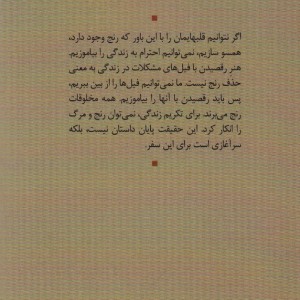 اگر نتوانیم قلبهایمان را با این باور که رنج وجود دارد،
همسو سازیم، نمی‌توانیم احترام به زندگی را بیاموزیم.
هنر رقصیدن با فیل‌های مشکلات در زندگی به معنی
حذف رنج نیست. ما نمی‌توانیم فیل‌ها را از بین ببریم،
پس باید رقصیدن با آنها را بیاموزیم. همه مخلوقات
رنج می‌برند. برای تکریم زندگی، نمی‌توان رنج و مرگ
را انکار کرد. این حقیقت پایان داستان نیست، بلکه
سرآغازی است برای این سفر.